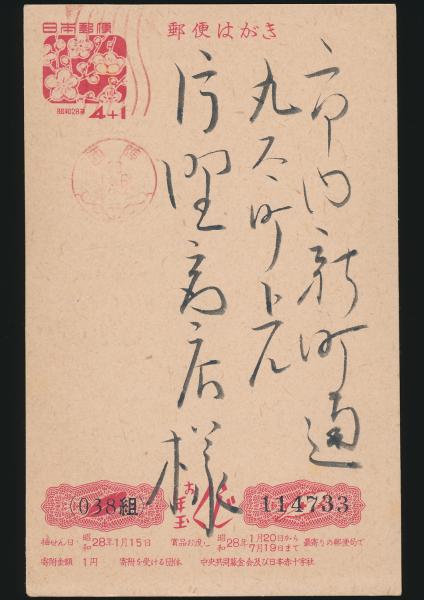 日本郵便
昭和28年
4+1
郵便はがき
市内新町通
丸太町上ル
片野商店様
038組
お年玉
くじ
114733
抽せん日・昭和28年1月15日
賞品お渡し・昭和28年1月20日から7月19日まで
最寄りの郵便局で
寄附金額 1円
寄附を受ける団体
中央共同募金会及び日本赤十字社